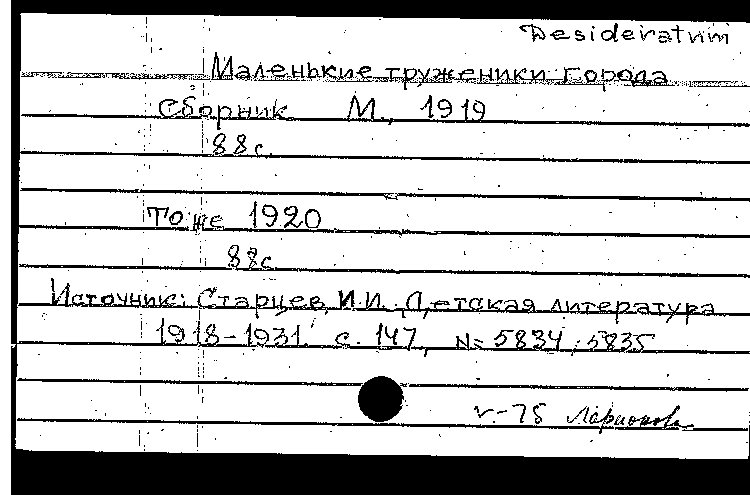 Desideratum
Маленькие труженики города
Сборник М., 1919
88с.
То же 1920
88с
Источник: Старцев, И.И. Детская литература
1918-1931. с. 147, № 5834; 5835
v-75 Ларионова